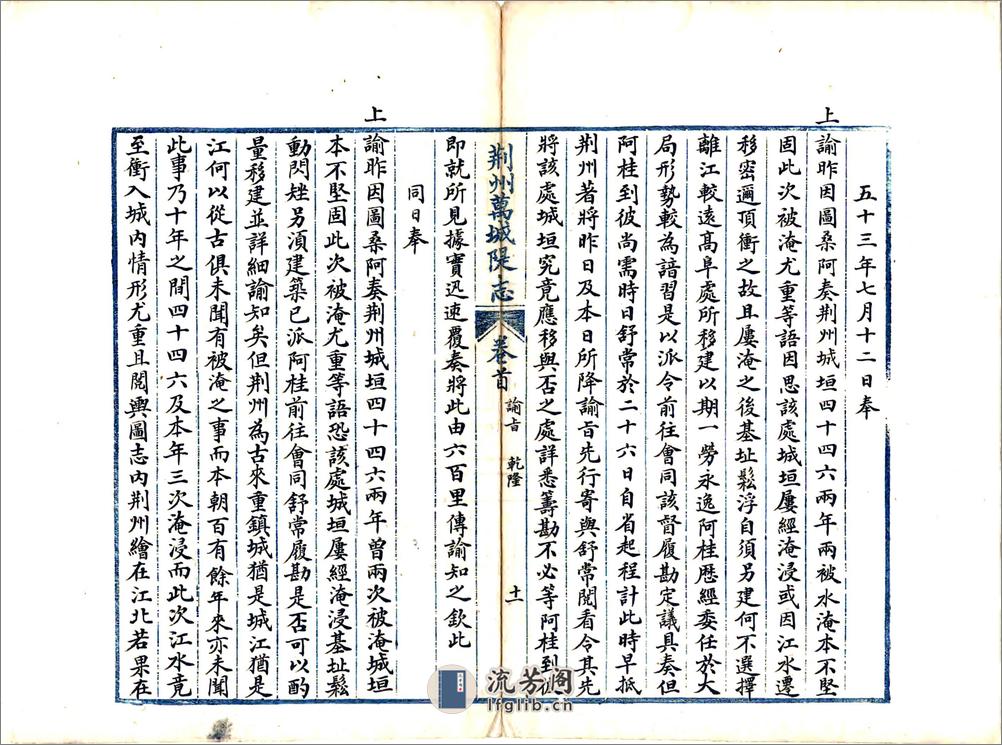 五十三年七月十二日奉
上諭昨因圖桑阿奏荆州城垣四十四六兩年兩被水淹本不堅
因此次被淹尤重等語因思該處城垣屢經淹浸或因江水遷
移密邇頂衝之故且屢淹之後基址鬆浮自須另建何不選擇
離江較遠高阜處所移建以期一勞永逸阿桂歷經委任於大
局形勢較為諳習是以派令前往會同該督履勘定議具奏但
阿桂到彼尚需時日舒常於二十六日自省起程計此時早抵
荆州著將昨日及本日所降諭旨先行寄與舒常閱看令其先
將該處城垣究竟應移與否之處詳悉籌勘不必等阿桂到彼
即就所見據實迅速覆奏將此由六百里傳諭知之欽此
荆州萬城隄志 卷首 諭旨 乾隆 十一
同日奉
上諭昨因圖桑阿奏荆州城垣四十四六兩年曾兩次被淹城垣
本不堅固此次被淹尤重等語恐該處城垣屢經淹浸基址鬆
動閃矬另湏建築已派阿桂前往會同舒常履勘是否可以酌
量移建並詳細諭知矣但荆州為古來重鎮城猶是城江猶是
江何以從古俱未聞有被淹之事而本朝百有餘年來亦未聞
此事乃十年之間四十四六及本年三次淹浸而此次江水竟
至衝入城內情形尤重且閱輿圖志內荆州繪在江北若果在
流芳阁
lfglib.cn